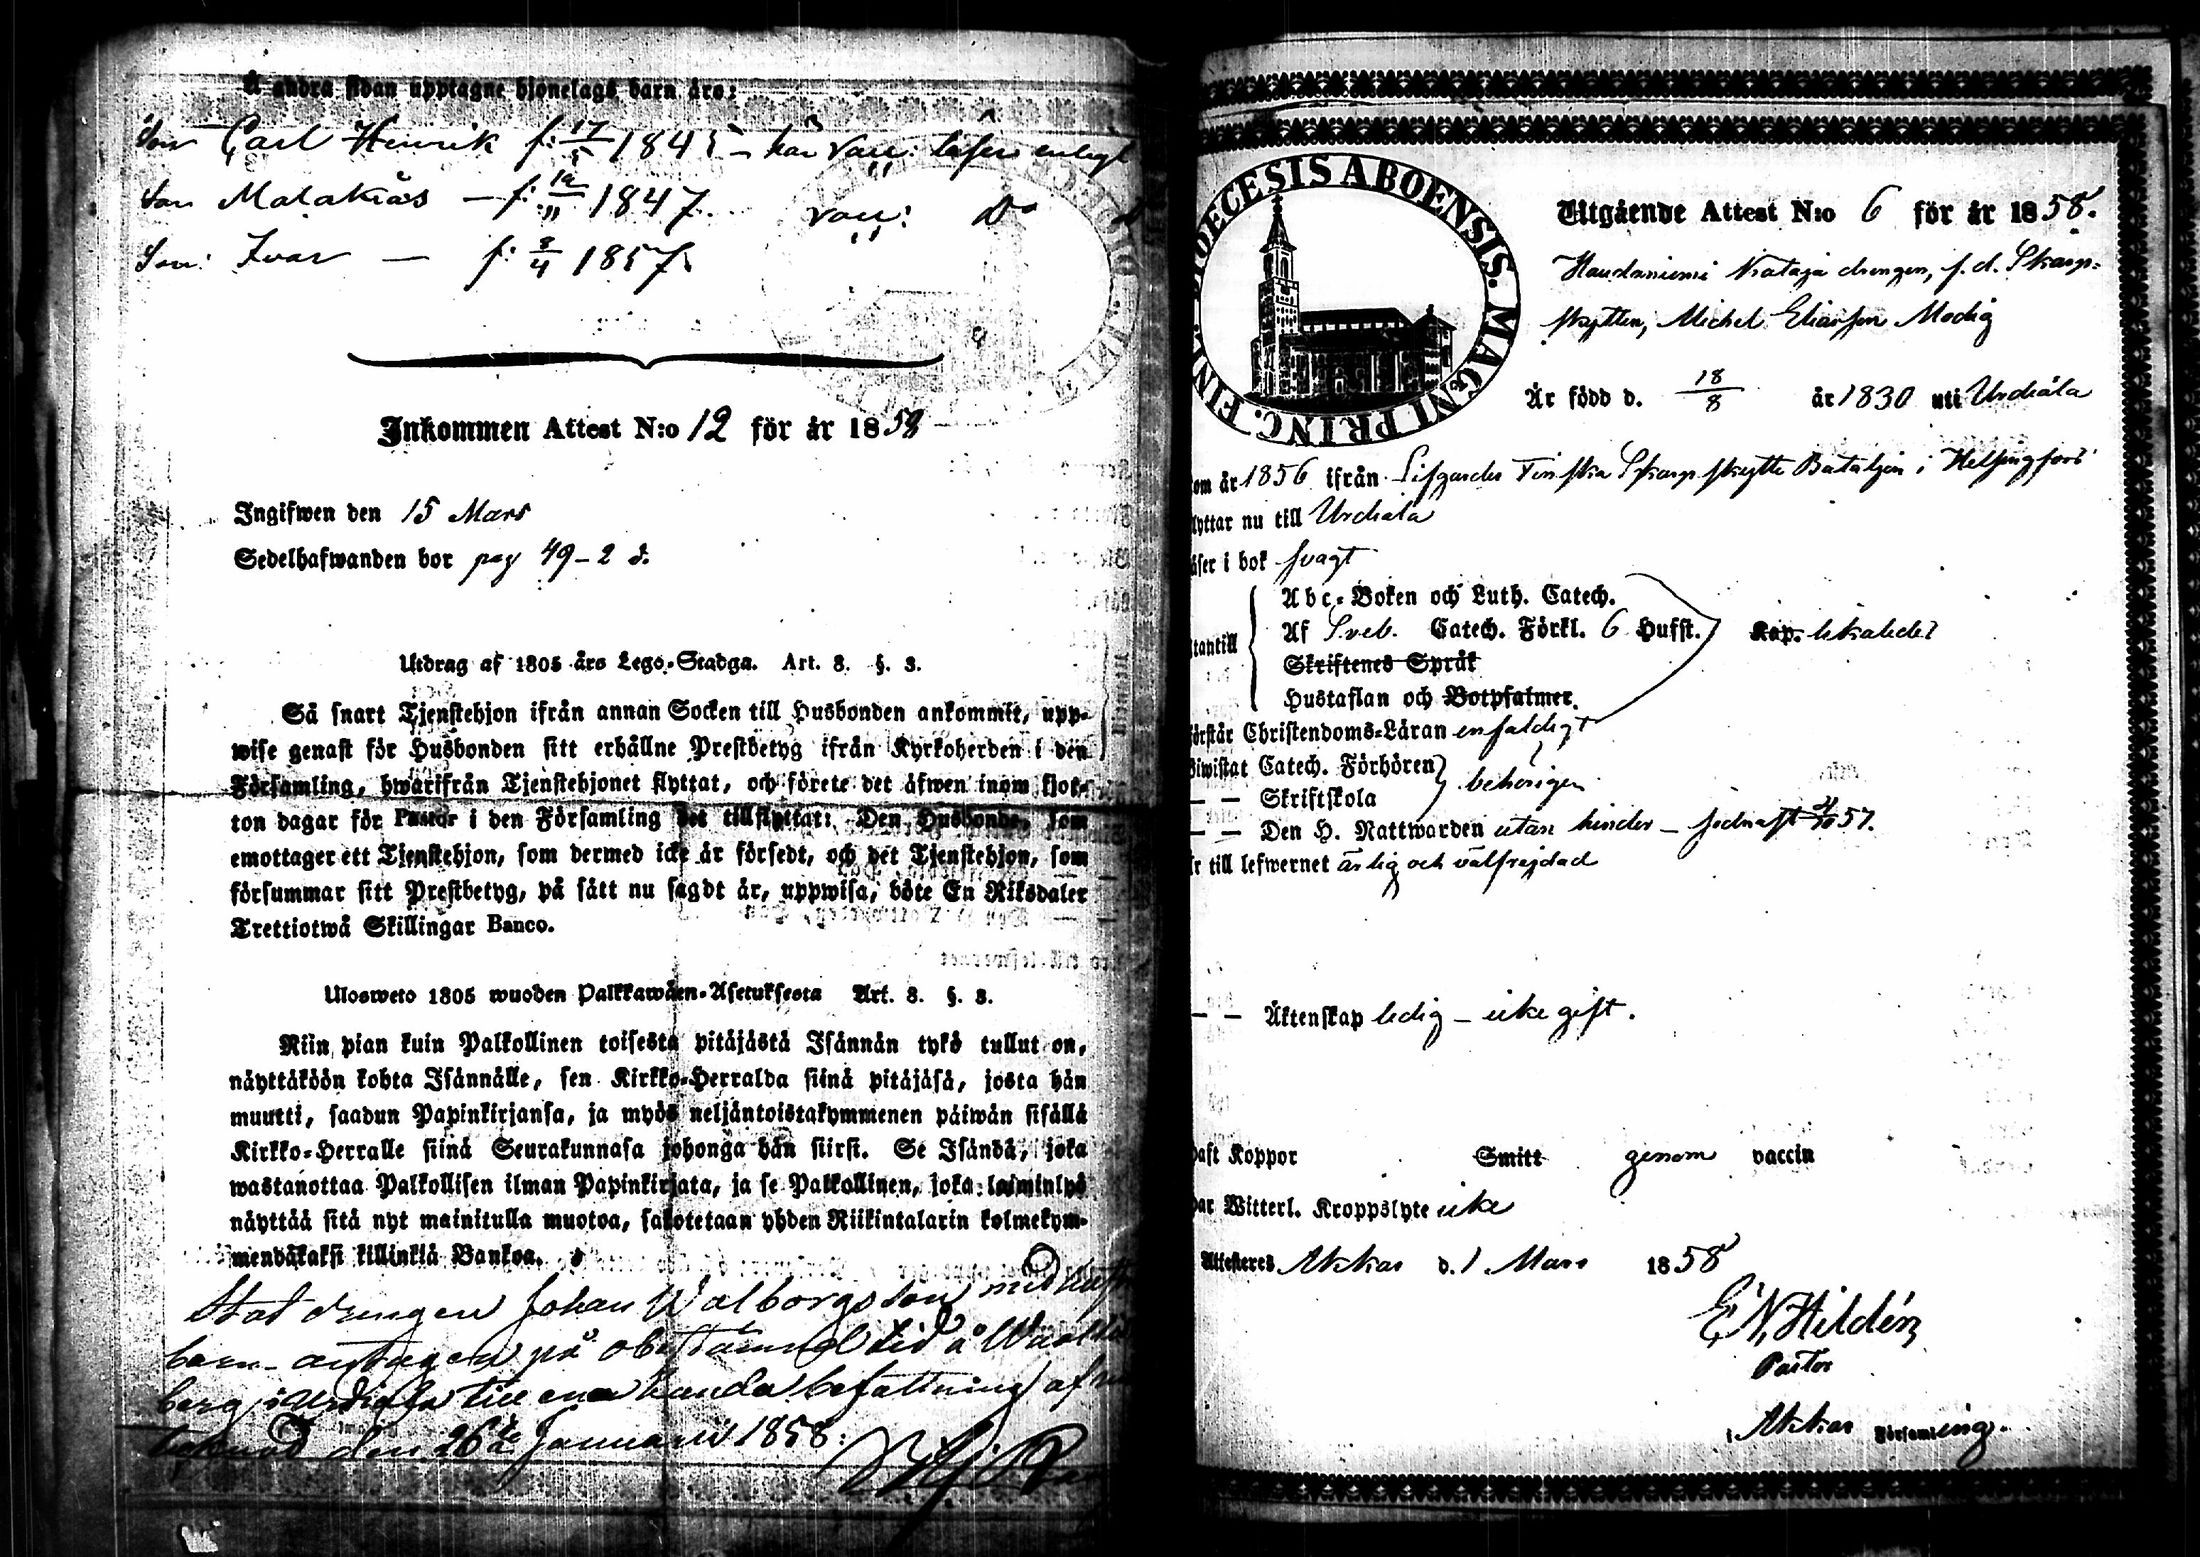 Å andra sidan upptagne hjonelags barn äro:
Son Carl Henrik f: 17/5 1845 – har vacc: läser enligt
Son Malakias – f: 19/11 1847. vacc: Do
Son: Ivar – f: 3/4 1857.
Inkommen Attest N:o 12 för år 1858
Ingifwen den 15 Mars
Sedelhafwanden bor pag 49 – 2 d.
Utdrag af 1805 års Lego-Stadga. Art. 8. §. 3.
Så snart Tjenstehjon ifrån annan Socken till Husbonden ankommit, upp-
wise genast för Husbonden sitt erhållne Prestbetyg ifrån Kyrkoherden i den
Församling, hwarifrån Tjenstehjonet flyttat, och förete det äfwen inom fjor-
ton dagar för Pastor i den Församling det tillflyttat: Den Husbonde, som
emottager ett Tjenstehjon, som dermed icke är försedt, och det Tjenstehjon, som
försummar sitt Prestbetyg, på sätt nu sagdt är, uppwisa, böte En Riksdaler
Trettiotwå Skillingar Banco.
Ulosweto 1805 wuoden Palkkawäen-Asetuksesta Art. 8. §. 3.
Niin pian kuin Palkollinen toisesta pitäjästä Isännän tykö tullut on,
näyttäköön kohta Isännälle, sen Kirkko-Herralda siinä pitäjäsä, josta hän
muutti, saadun Papinkirjansa, ja myös neljäntoistakymmenen päiwän sisällä
Kirkko-Herralle siinä Seurakunnasa johonga hän siirsi. Se Isändä, joka
wastanottaa Palkollisen ilman Papinkirjata, ja se Palkollinen, joka laiminlyö
näyttää sitä nyt mainitulla muotoa, sakotetaan yhden Riikintalarin kolmekym-
mendäkaksi killinkiä Bankoa.
Statdrengen Johan Walborgsson med hustru
barn antagen på obestämd tid å
berg i Urdiala till enahanda befattning af
den 26te Januarii 1858.
FINL. DIOECESIS ABOENSIS. MAGNI PRINC.
Utgående Attest N:o 6 för år 1858.
Haudaniemi Kataja drengen, f. d. Skarp-
skytten, Michel Eliasson Modig
Är född d. 18/8 år 1830 uti Urdiala
om år 1856 ifrån Lifgardes Finska Skarpskytte Bataljon i Helsingfors
lyttar nu till Urdiala
äser i bok svagt
Abc-Boken och Luth. Catech.
tantill Af Sveb. Catech. Förkl. 6 Hufst. Kap. likaledes
Skriftenes Språk
Hustaflan och Botpsalmer.
örstår Christendoms-Läran enfaldigt
Biwistat Catech. Förhören
— — Skriftskola behörigen
— — Den H. Nattwarden utan hinder – sednast 4/10 57.
r till lefwernet ärlig och välfrejdad
— — Äktenskap ledig – icke gift.
haft Koppor Smitt genom vaccin
har Witterl. Kroppslyte icke
Attesteres Akkas d. 1 Mars 1858
E N Hildén
Pastor
i Akkas Församling.